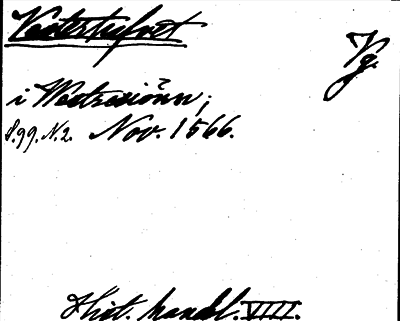 Vestertufvet
Vg.
i Westresiönn;
S. 99. N. 2. Nov. 1566.
Hist. handl. VIII.